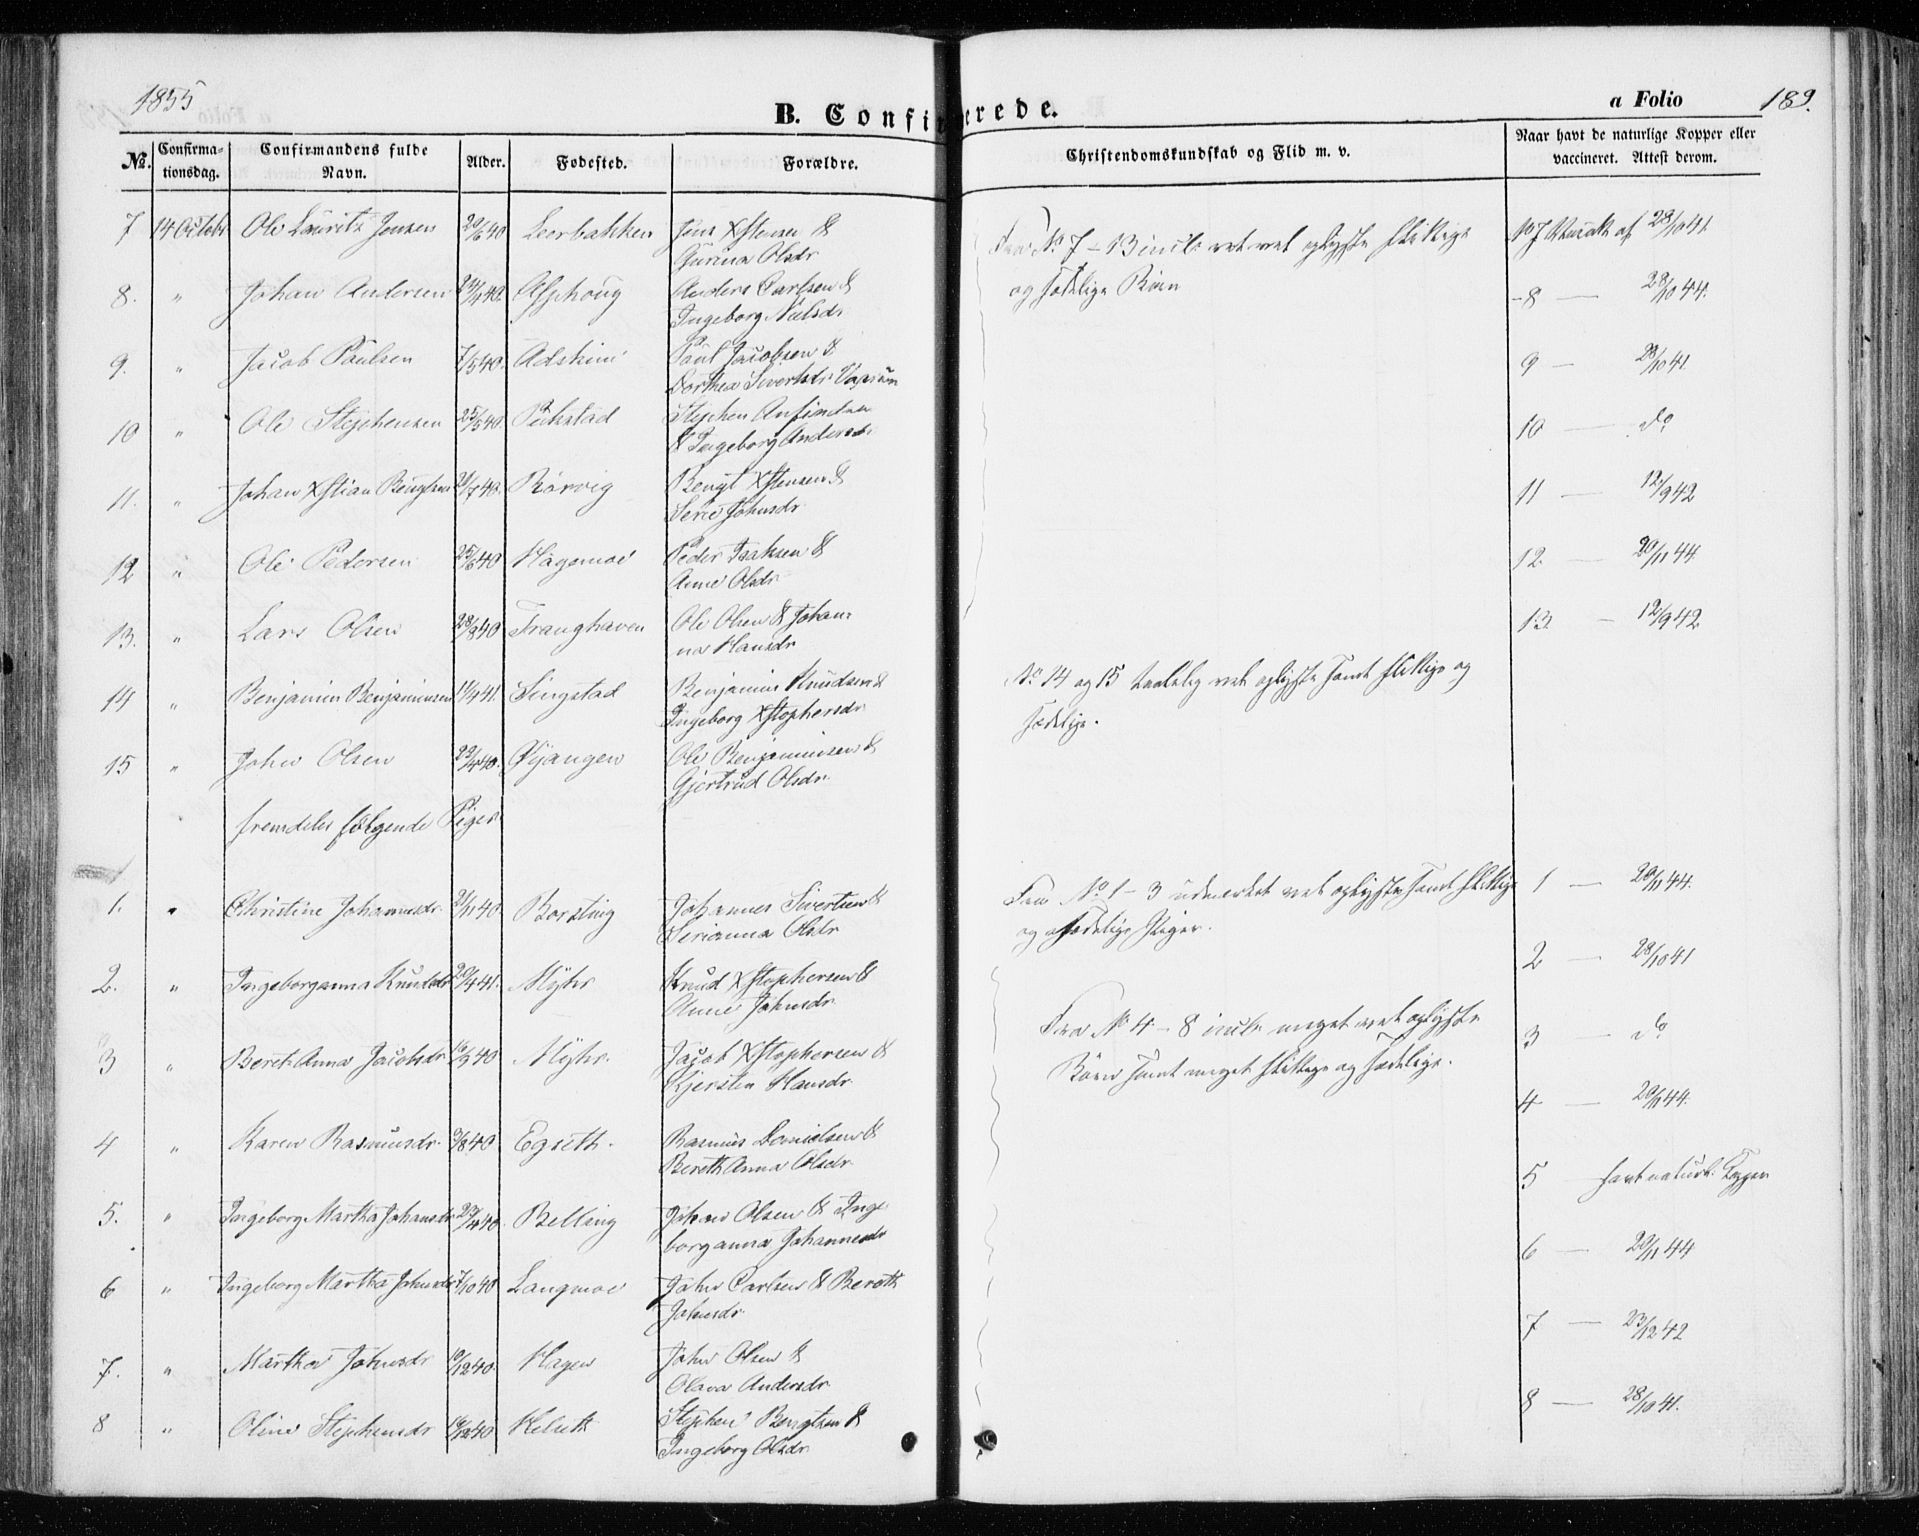 1855
B. Confirmerede.
a Folio
189.
No. Confirmationsdag. Confirmandens fulde Navn. Alder. Fødested. Forældre. Christendomskundskab og Flid m. v. Naar havt de naturlige Kopper eller vaccineret. Attest derom.
7 14 Octobr Ole Lauritz Jensen 20/6 40 Leerbakken Jens Xstensen &
Gurina Olsdr
Fra No 7 - 13 incl. vel oplyste flittige
og sædelige Børn
No 7 28/10 41.
8. " Johan Andersen 40. Asphoug Anders Carlsen &
Ingeborg Nielsdr
-8 — 28/10 44.
9. " Jacob Paulsen 7/5 40. Adskim Paul Jacobsen &
Dorthea Sivertsdr
9 — 28/10 41.
10 " Ole Stephensen 25/5 40. Pikstad Stephen Anfindsen
& Ingeborg Andersdr
10 — do
11. " Johan Xstian Bengtsen 7 40. Rørvig Bengt Xstensen &
Serie Johnsdr
11 — 12/9 42
12 " Ole Pedersen 25/6 40 Hagemoe Peder Isaksen &
Anne Olsdr
12. — 20/11 44.
13. " Lars Olsen 28/8 40 Tranghaven Ole Olsen & Johan-
na Hansdr
13 — 12/9 42
14 " Benjamin Benjaminsen 11/4 41. Singstad Benjamin Knudsen &
Ingeborg Xstophersdr
No 14 og 15 vel oplyste samt flittige og
sædelige.
15 " John Olsen 22/4 40. Øyangen Ole Benjaminsen &
Gjertrud Olsdr.
fremdeles følgende Piger
1. " Christine Johannesdr 11 40 Borsting Johannes Sivertsen &
Serianna Olsdr
Fra No 1 - 3 udmerket vel oplyste samt flittige
og sædelige Piger.
1 — 20/11 44.
2. " Ingeborganna Knudsdr 20/4 41. Myhr Knud Xstophersen &
Anne Johnsdr.
2 — 28/10 41
3 " Bereth Anna Jacobsdr 16/9 40 Myhr. Jacob Xstophersen &
Kjersten Hansdr.
Fra No 4 - 8 incl. meget vel oplyste
Børn samt meget flittige og sædelige.
3 — do
4 " Karen Rasmusdr. 8 40 Egseth. Rasmus Danielsen &
Bereth Anna Olsdr.
4 — 20/11 44.
5. " Ingeborg Martha Johansdr 40. Belling Johan Olsen & Inge-
borganna Johannesdr
5 — havt naturl. Kopper
6 " Ingeborg Martha Johnsdr 7/10 40 Langmoe John Carlsen & Bereth
Johnsdr.
6 — 20/11 44
7. " Martha Johnsdr 10/12 40. Hagen John Olsen &
Olava Andersdr.
7 — 23/12 42
8 " Oline Stephensdr 16/12 40 Kelseth Stephen Bengtsen &
Ingeborg Olsdr.
8 — 28/10 41.